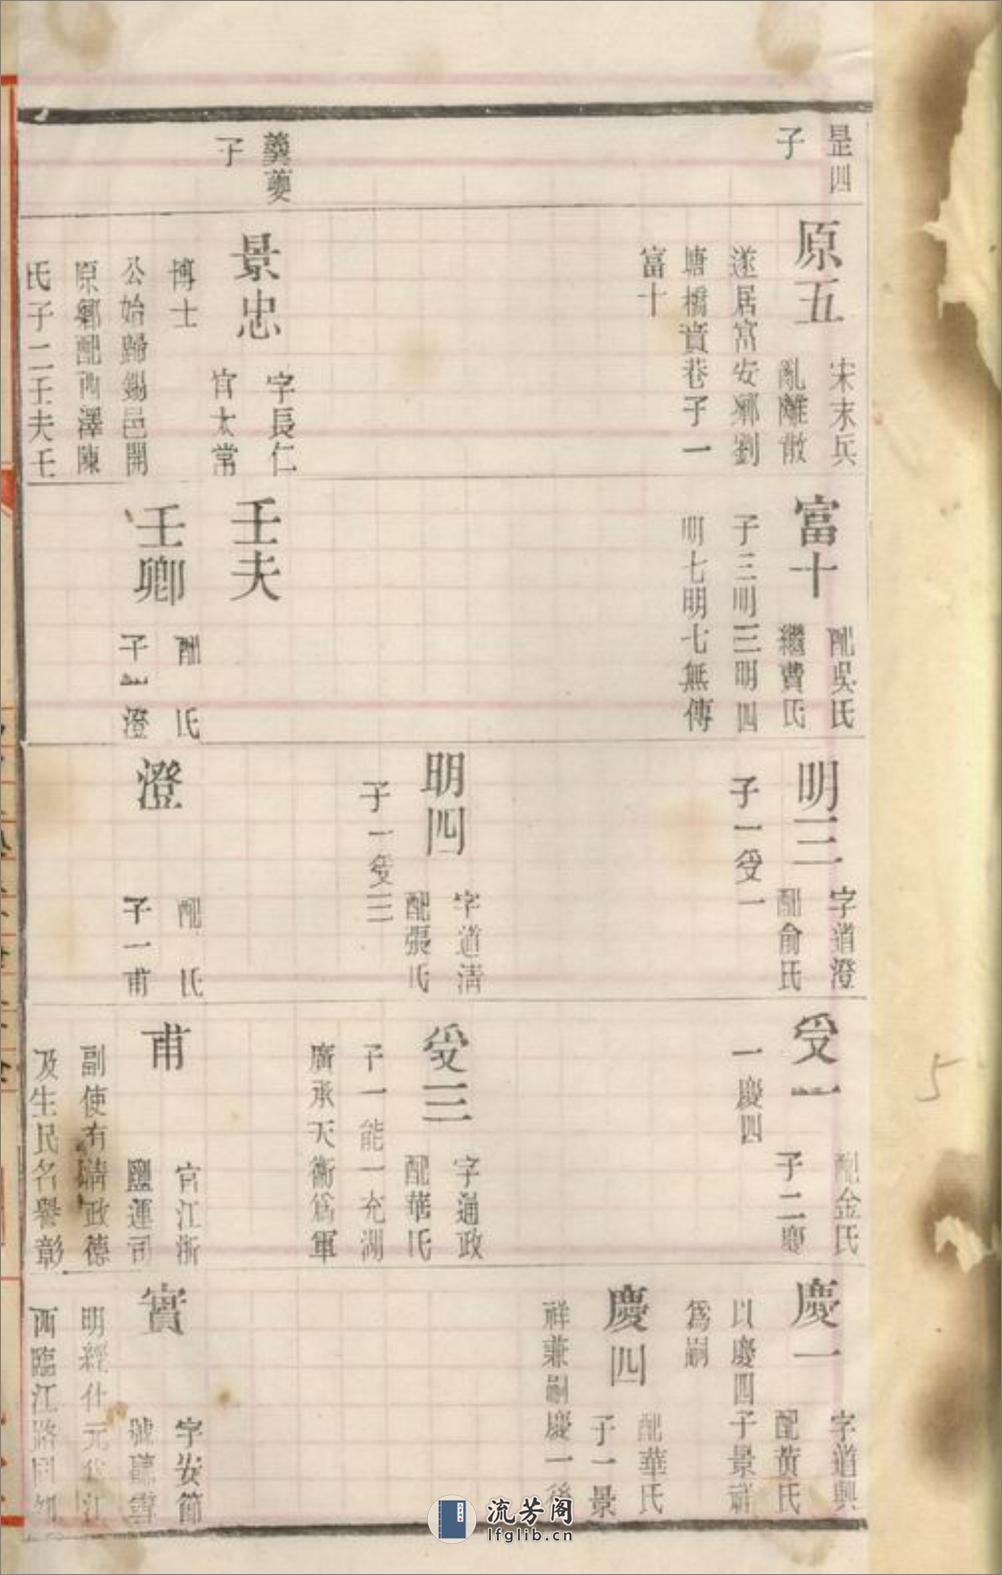 昰四
子
原五
宋末兵
亂離散
遂居富安鄉劉
塘橋賣巷子一
富十
富十
配吳氏
繼費氏
子三明三明四
明七明七無傳
明三
字道澄
配俞氏
子一受一
受一
配金氏
子二慶
一慶四
慶一
字道興
配黃氏
以慶四子景祥
為嗣
慶四
配華氏
子一景
祥兼嗣慶一後
明四
字道清
配張氏
子一受三
受三
字通政
配華氏
子一能一充湖
廣承天衞為軍
子
景忠
字長仁
官太常
博士
公始歸錫邑開
原鄉配西澤陳
氏子二壬夫壬
壬夫
壬卿
配 氏
子一澄
澄
配 氏
子一甫
甫
官江浙
鹽運司
副使有清政德
及生民名譽彰
實
字安節
號聽雪
明經仕元代江
西臨江路同知
流芳阁
lfglib.cn
5